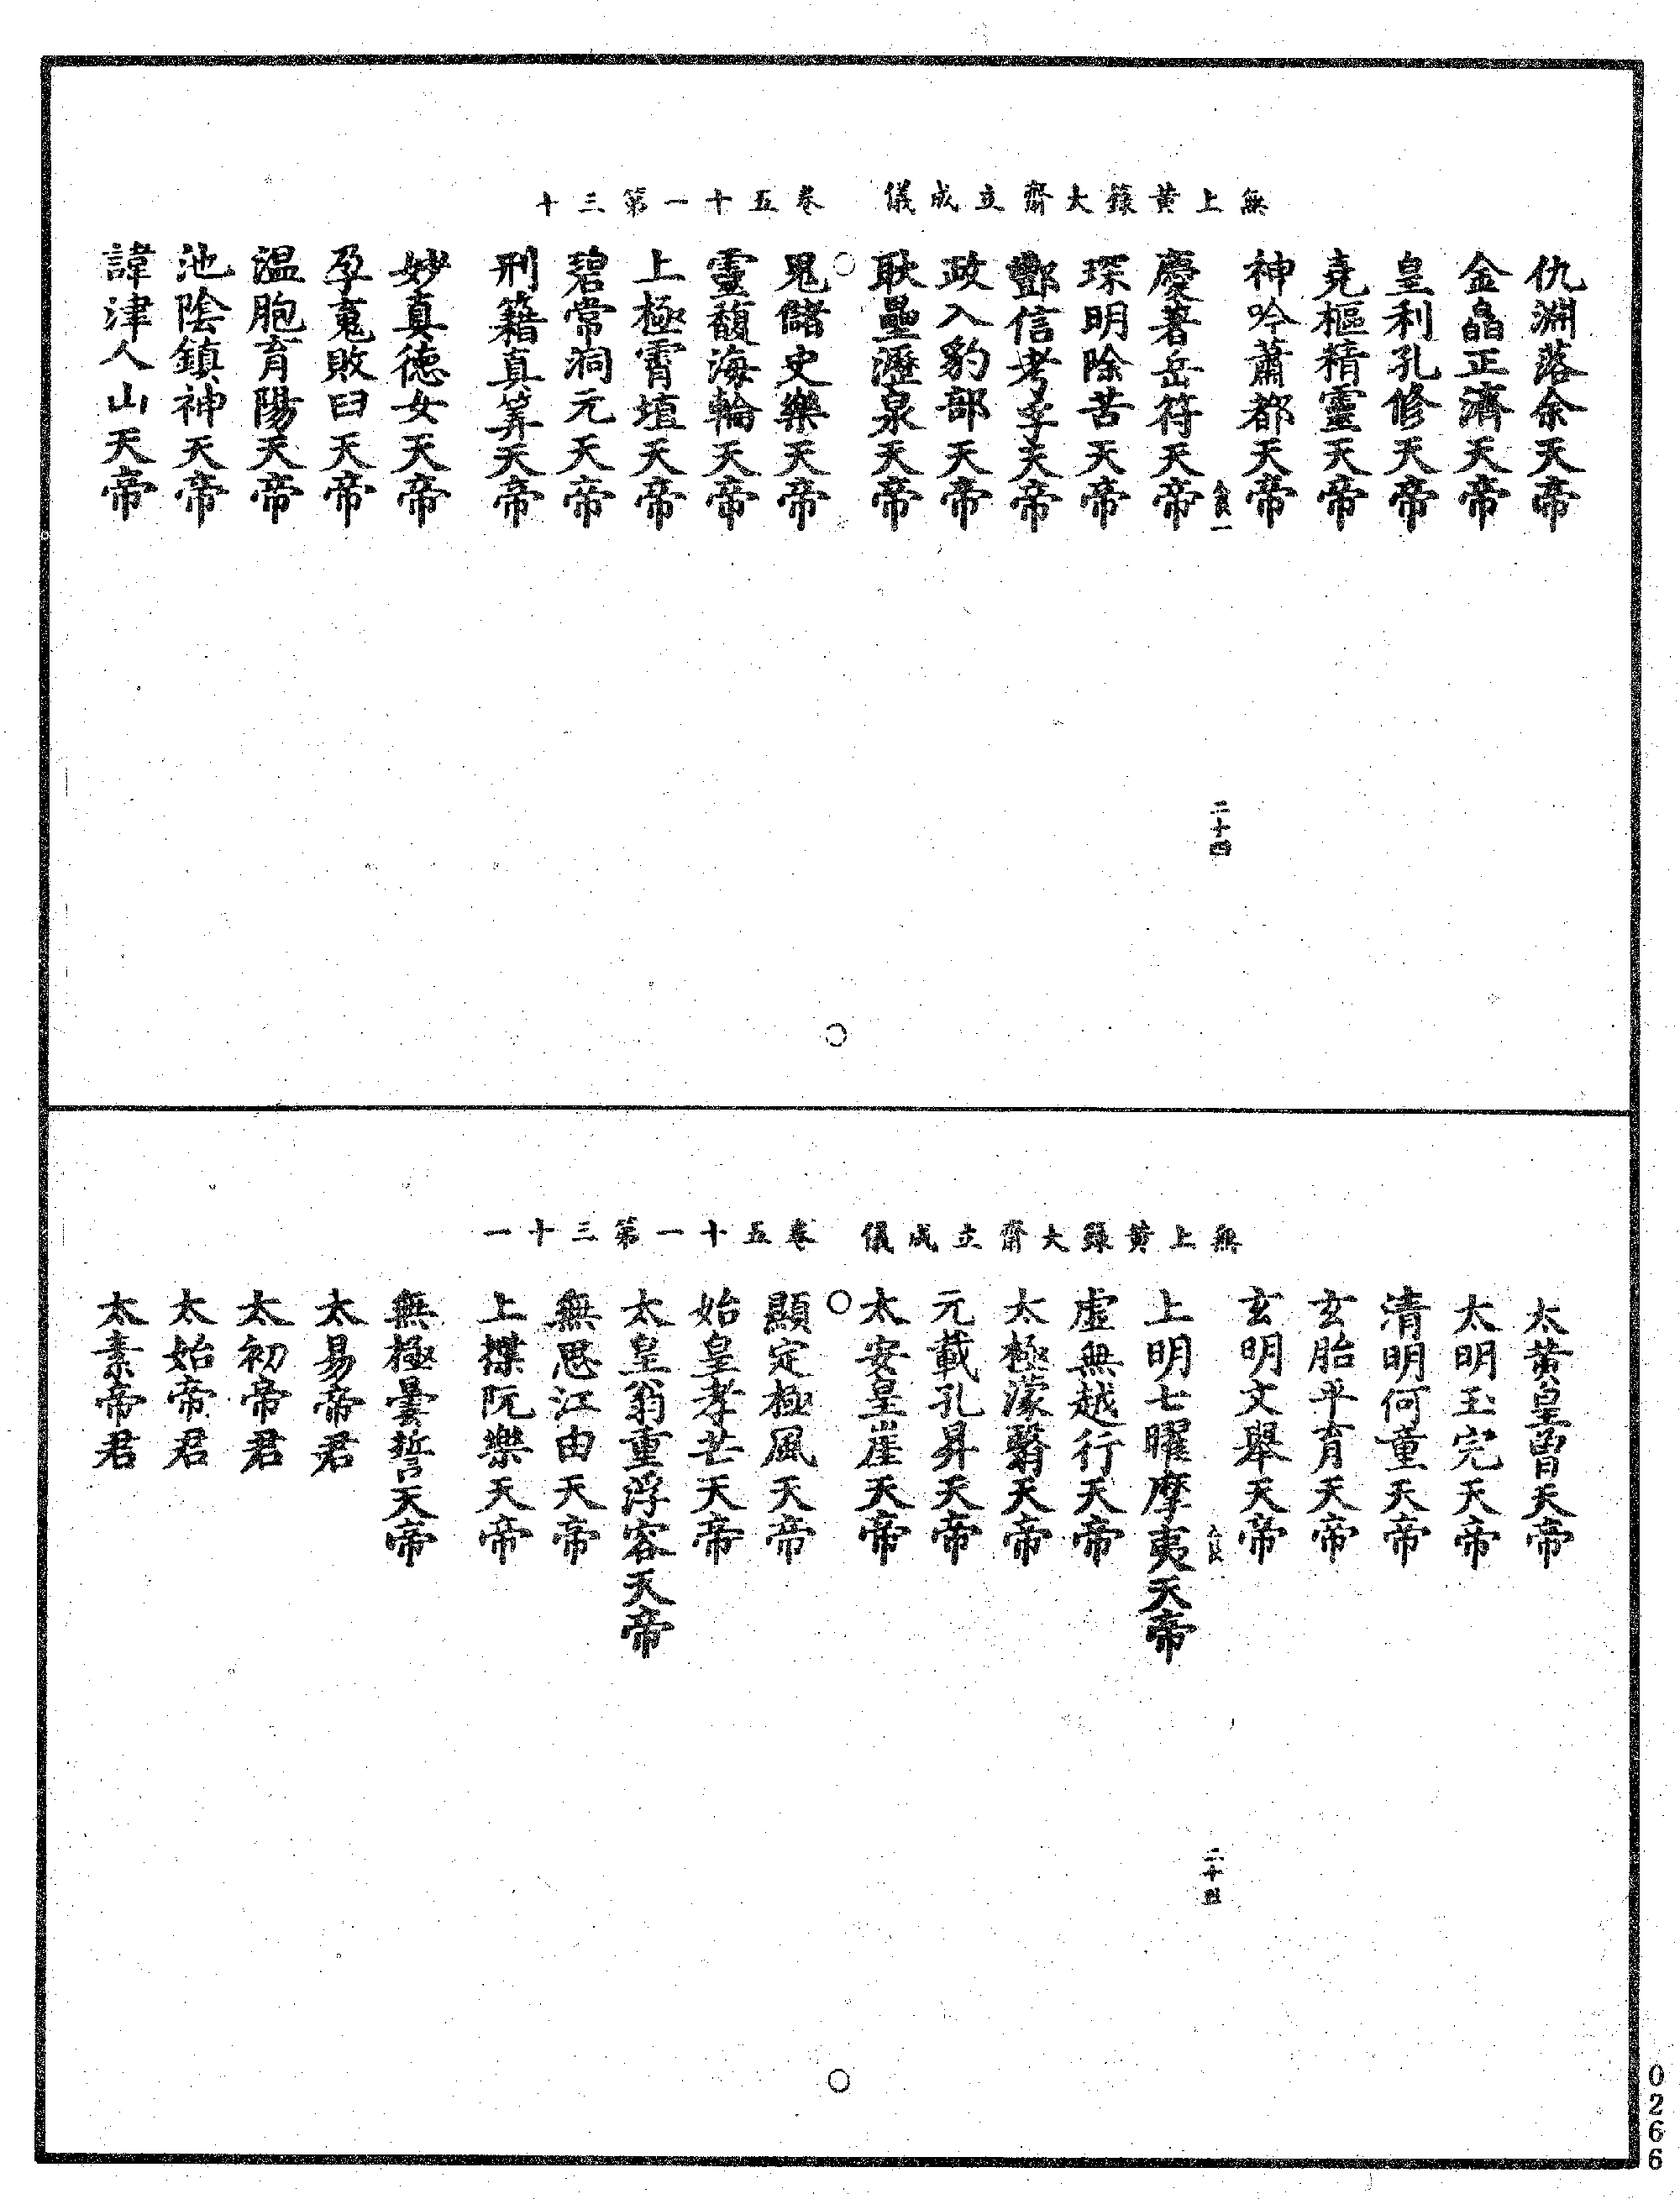 無上黃籙大齋立成儀 卷五十一第三十
仇淵落余天帝
金皛正濟天帝
皇利孔修天帝
堯樞精靈天帝
神吟蕭都天帝
慶著岳符天帝
琛明除苦天帝
酆信考孛天帝
政入豹部天帝
耿壘瀝泉天帝
鬼儲史樂天帝
靈馥海輪天帝
上極霄壇天帝
碧常洞元天帝
刑籍真筭天帝
妙真德女天帝
孕蒐敗臼天帝
溫胞育陽天帝
池陰鎮神天帝
諱津人山天帝
二十四
無上黃籙大齋立成儀 卷五十一第三十一
太黃皇曾天帝
太明玉完天帝
清明何童天帝
玄胎平育天帝
玄明文舉天帝
上明七曜摩夷天帝
虛無越行天帝
太極濛翳天帝
元載孔昇天帝
太安皇崖天帝
顯定極風天帝
始皇孝芒天帝
太皇翁重浮容天帝
無思江由天帝
上揲阮樂天帝
無極曇誓天帝
太易帝君
太初帝君
太始帝君
太素帝君
二十四
0266